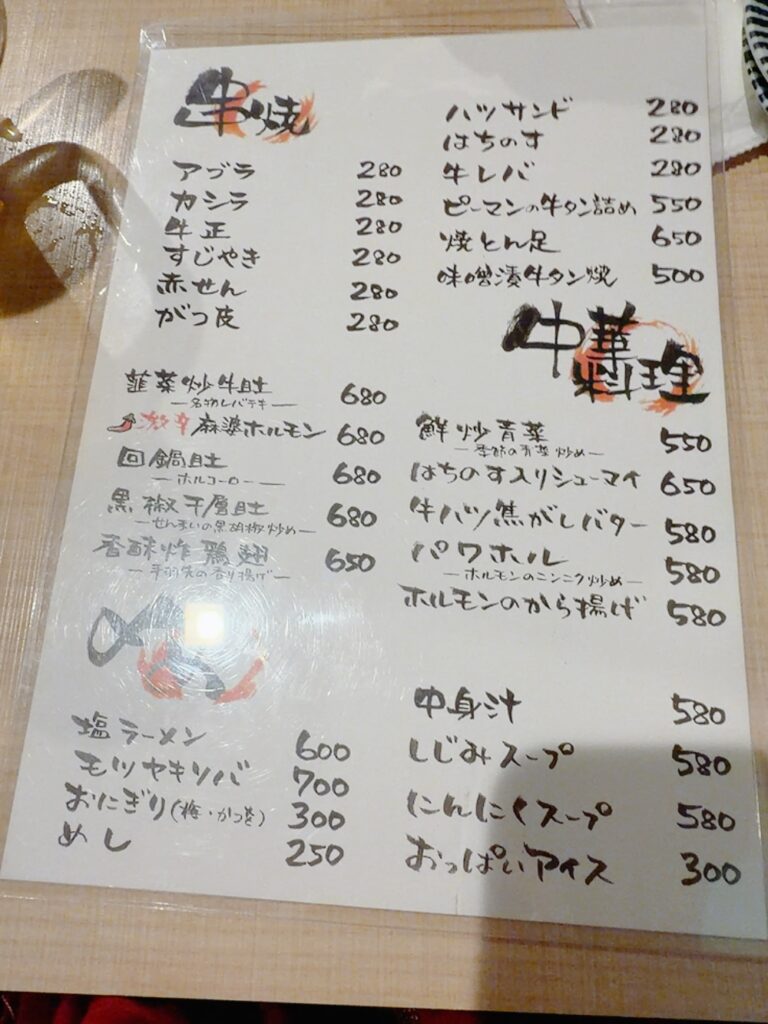 串焼
アブラ 280
カシラ 280
牛正 280
すじやき 280
赤せん 280
がつ皮 280
ハツサンド 280
はちのす 280
牛レバ 280
ピーマンの牛タン詰め 550
焼とん足 650
味噌漬牛タン焼 500
中華料理
韮菜炒牛肚 680
ー名物レバテキー
激辛麻婆ホルモン 680
回鍋肚 680
ーホルコーローー
黒椒千層肚 680
ーせんまいの黒胡椒炒めー
香酥炸鶏翅 650
ー手羽先の香り揚げー
鮮炒青菜 550
ー季節の青菜炒めー
はちのす入りシューマイ 650
牛ハツ焦がしバター 580
パワホル 580
ーホルモンのニンニク炒めー
ホルモンのから揚げ 580
〆
塩ラーメン 600
モツヤキソバ 700
おにぎり(梅・かつを) 300
めし 250
中身汁 580
しじみスープ 580
にんにくスープ 580
おっぱいアイス 300